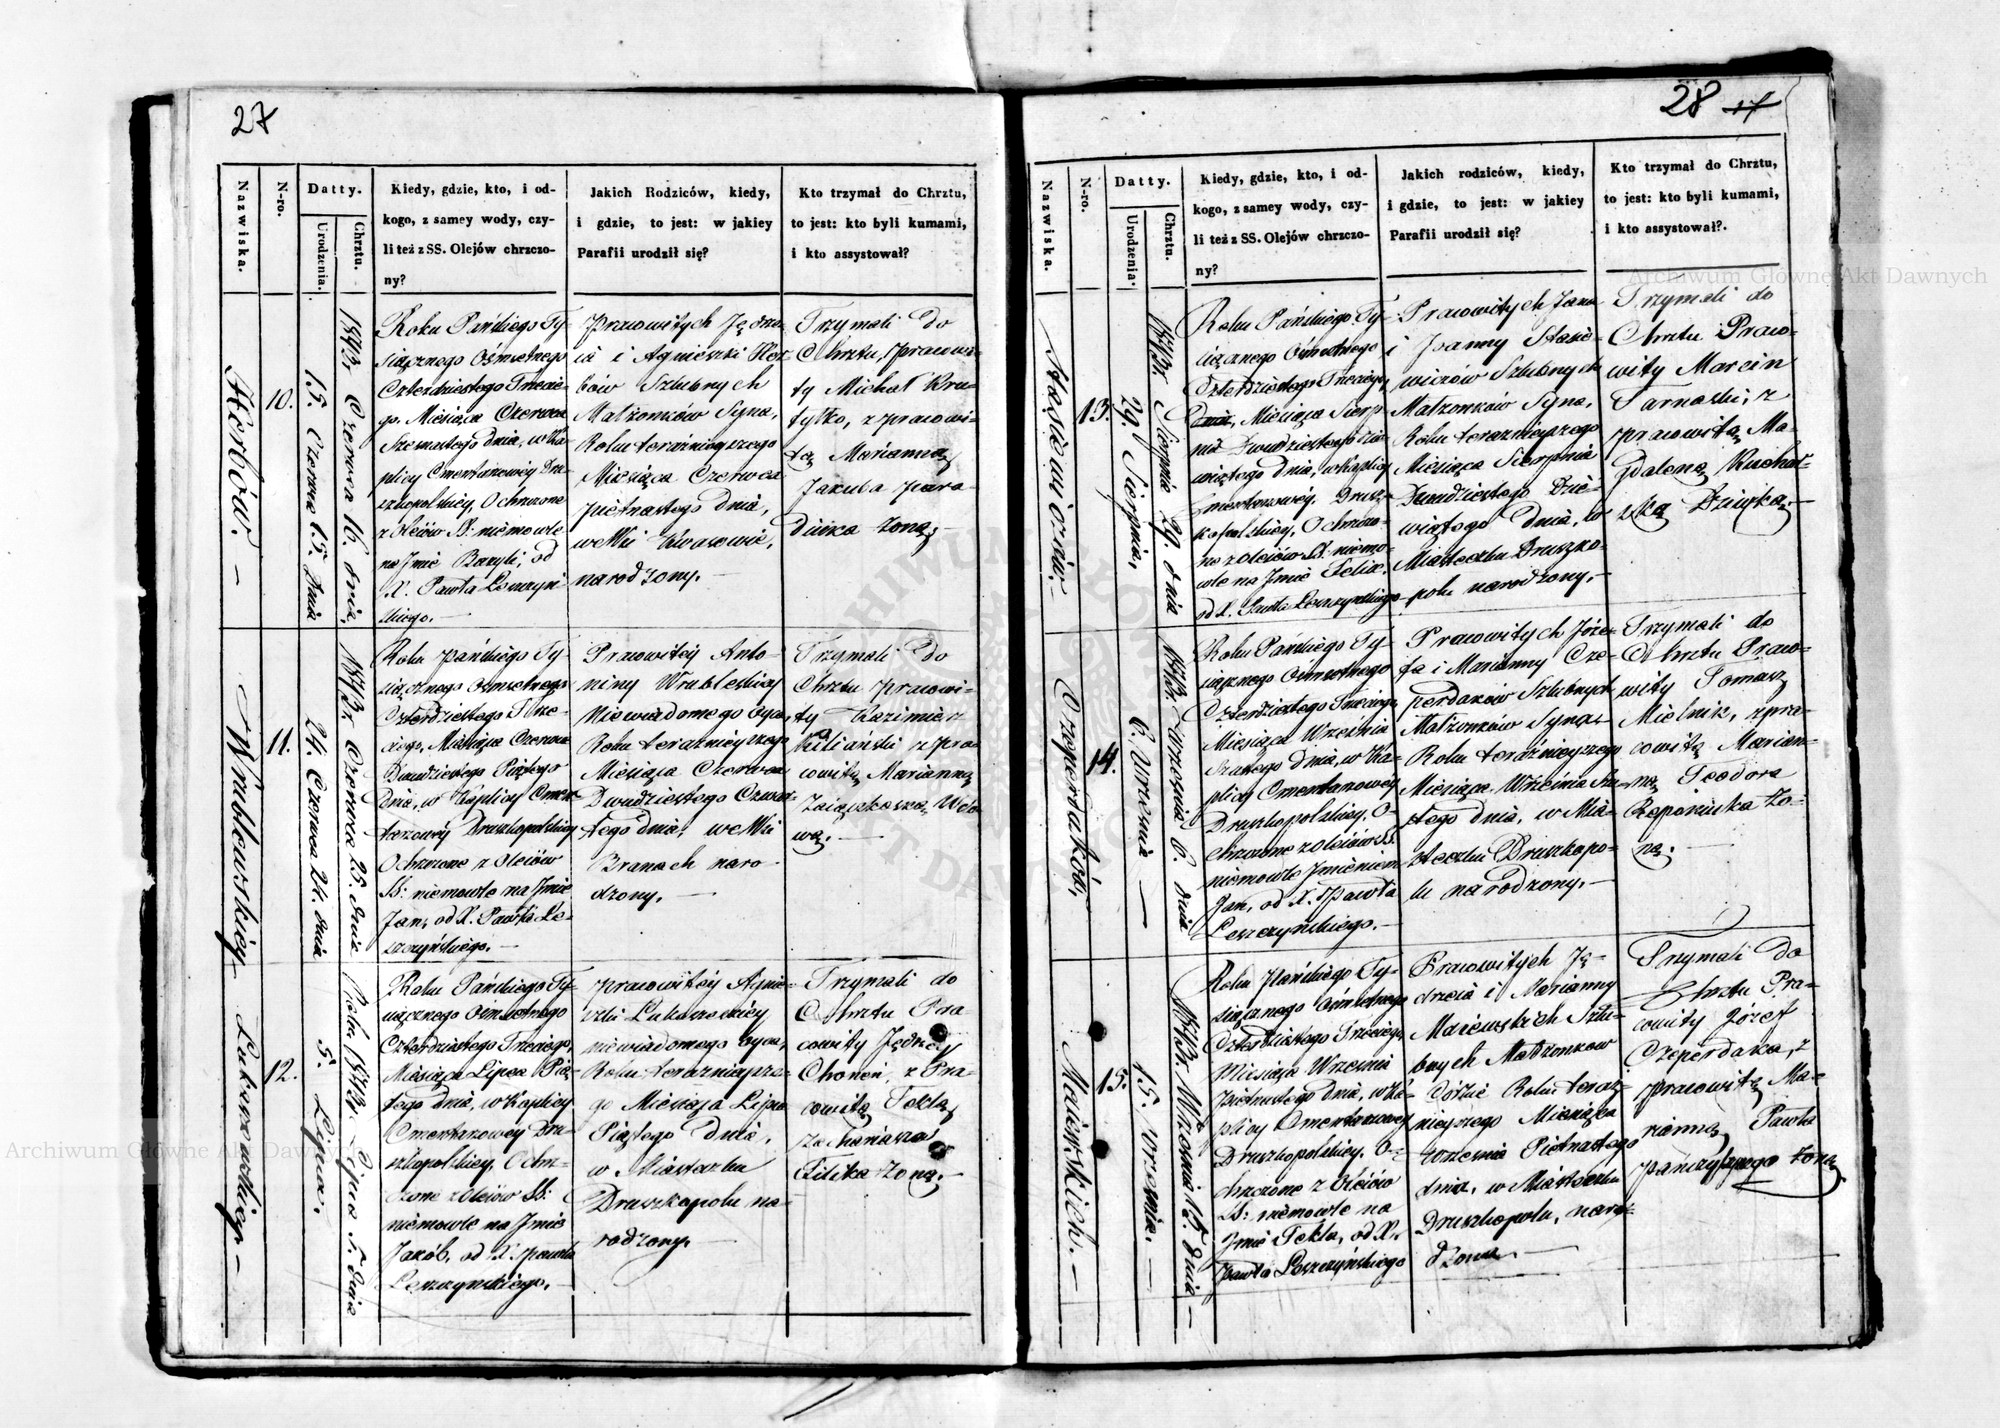 27
Nazwiska.
N-ro.
Datty.
Urodzenia.
Chrztu.
Kiedy, gdzie, kto, i od-
kogo, z samey wody, czy-
li też z SS. Olejów chrzczo-
ny?
Jakich Rodziców, kiedy,
i gdzie, to jest: w jakiey
Parafii urodził się?
Kto trzymał do Chrztu,
to jest: kto byli kumami,
i kto assystował?
10.
15. Czerwca 15. dnia
1843r Czerwca 16. dnia
Roku Pańskiego Ty-
siącznego Ośmsetnego
Czterdziestego Trzecie-
go, Miesiąca Czerwca
Szesnastego dnia, w Ka-
plicy Cmentarzowéy Dru-
szkopolskiéy, Ochrzczone
z Oleiów SS: niemowle
na Jmie Bazyli, od
X. Pawła Leszczyń-
skiego.
Pracowitych Jędrze-
ia i Agnieszki
Szlubnych
Małżonków Syna,
Roku teraźnieyszego
Miesiąca Czerwca
Piętnastego dnia,
we Wsi
narodzony.
Trzymali do
Chrztu, Pracowi-
ty Michał
z Pracowi-
tą Marianną
Jakuba
żoną.
Wrublewskiéy
11.
24. Czerwca 24. dnia
1843r Czerwca 25. dnia
Roku Pańskiego Ty-
siącznego Ośmsetnego
Czterdziestego Trze-
ciego, Miesiąca Czerwca
Dwudziestego Piątego
dnia, w Kaplicy Cmen-
tarzowéy Druszkopolskiéy
Ochrzczone z Oleiów
SS: niemowle na Jmie
Jan, od X. Pawła Le-
szczyńskiego.
Pracowitéy Anto-
niny Wrublewskiéy
Niewiadomego Oyca,
Roku teraźnieyszego
Miesiąca Czerwca
Dwudziestego Czwar-
tego dnia, we Wsi
Branach naro-
dzony.
Trzymali do
Chrztu Pracowi-
ty Kazimierz
z Pra-
cowitą Marianną
Wdo-
wą.
12.
5. Lipca.
Roku 1843r. Lipca 5. dnia
Roku Pańskiego Ty-
siącznego Ośmsetnego
Czterdziestego Trzeciego,
Miesiąca Lipca Pią-
tego dnia, w Kaplicy
Cmentarzowéy Dru-
szkopolskiéy, Ochrz-
czone z Oleiów SS:
niemowle na Jmie
Jakób, od X. Pawła
Leszczyńskiego.
Pracowitéy Agnie-
szki
niewiadomego Oyca,
Roku teraźnieysze-
go Miesiąca Lipca
Piątego dnia,
w Miasteczku
Druszkopolu na-
rodzony.
Trzymali do
Chrztu Pra-
cowity Jędrzéy
z Pra-
cowitą Teklą
Zachariasza
żoną.
28 17
Nazwiska.
N-ro.
Datty.
Urodzenia.
Chrztu.
Kiedy, gdzie, kto, i od-
kogo, z samey wody, czy-
li też z SS. Olejów chrzczo-
ny?
Jakich rodziców, kiedy,
i gdzie, to jest: w jakiey
Parafii urodził się?
Kto trzymał do Chrztu,
to jest: kto byli kumami,
i kto assystował?.
Stasiewiczów.
13.
29. Sierpnia,
1843r. Sierpnia 29. dnia
Roku Pańskiego Ty-
siącznego Ośmsetnego
Czterdziestego Trzeciego,
Miesiąca Sierp-
nia Dwudziestego Dzie-
wiątego dnia, w Kaplicy
Cmentarzowéy Drusz-
kopolskiéy, Ochrzczo-
ne z Oleiów SS: niemo-
wle na Jmie Felix,
od X. Pawła Leszczyńskiego
Pracowitych Jana
i Joanny Stasie-
wiczów Szlubnych
Małżonków Syna,
Roku teraźnieyszego
Miesiąca Sierpnia
Dwudziestego Dzie-
wiątego dnia, w
Miasteczku Druszko-
polu narodzony.
Trzymali do
Chrztu Praco-
wity Marcin
Tarnaski, z
Pracowitą Ma-
gdaleną Kuchar-
ską Dziewką.
Czeperdaków,
14.
6. Września
1843r. Września 6. dnia
Roku Pańskiego Ty-
siącznego Ośmsetnego
Czterdziestego Trzeciego,
Miesiąca Września
Szustego dnia, w Ka-
plicy Cmentarzowéy
Druszkopolskiéy, O-
chrzczone z Oleiów SS.
niemowle Jmieniem
Jan, od X. Pawła
Leszczyńskiego.
Pracowitych Józe-
fa i Marianny Cze-
perdaków Szlubnych
Małżonków Syna,
Roku teraźnieyszego
Miesiąca Września Szu-
stego dnia, w Mia-
steczku Druszkopo-
lu narodzony.
Trzymali do
Chrztu Praco-
wity Tomasz
Mielnik, z Pra-
cowitą Marian-
ną Teodora
żo-
ną.
Maiewskich.
15.
15. Września.
1843r. Września 15. dnia
Roku Pańskiego Ty-
siącznego Ośmsetnego
Czterdziestego Trzeciego,
Miesiąca Września
Piętnastego dnia, w Ka-
plicy Cmentarzowéy
Druszkopolskiéy, O-
chrzczone z Oleiów
SS: niemowle na
Jmie Tekla, od X.
Pawła Leszczyńskiego
Pracowitych Ję-
drzeia i Marianny
Maiewskich Szlu-
bnych Małżonków
Córka Roku teraz-
nieyszego Miesiąca
Września Piętnastego
dnia, w Miasteczku
Druszkopolu, naro-
dzona.
Trzymali do
Chrztu Pra-
cowity Józef
Czeperdaka, z
Pracowitą Ma-
rianną Pawła
żoną.
Archiwum Główne Akt Dawnych
Archiwum Główne Akt Dawnych